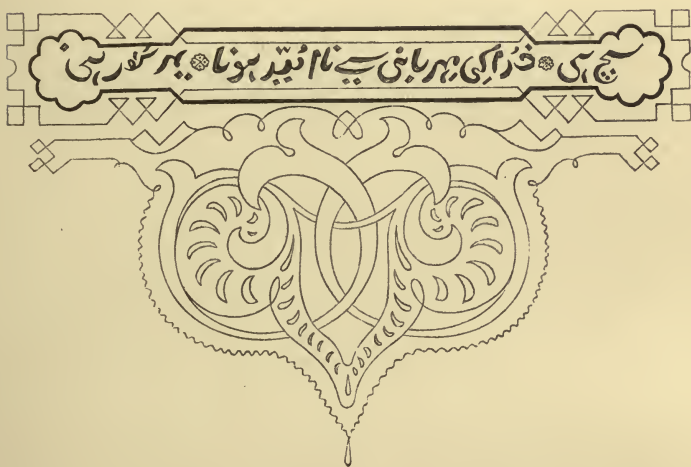 سچ ہی ❊ خدا کی مہربانی سے نا امّید ہونا ❊ ہی